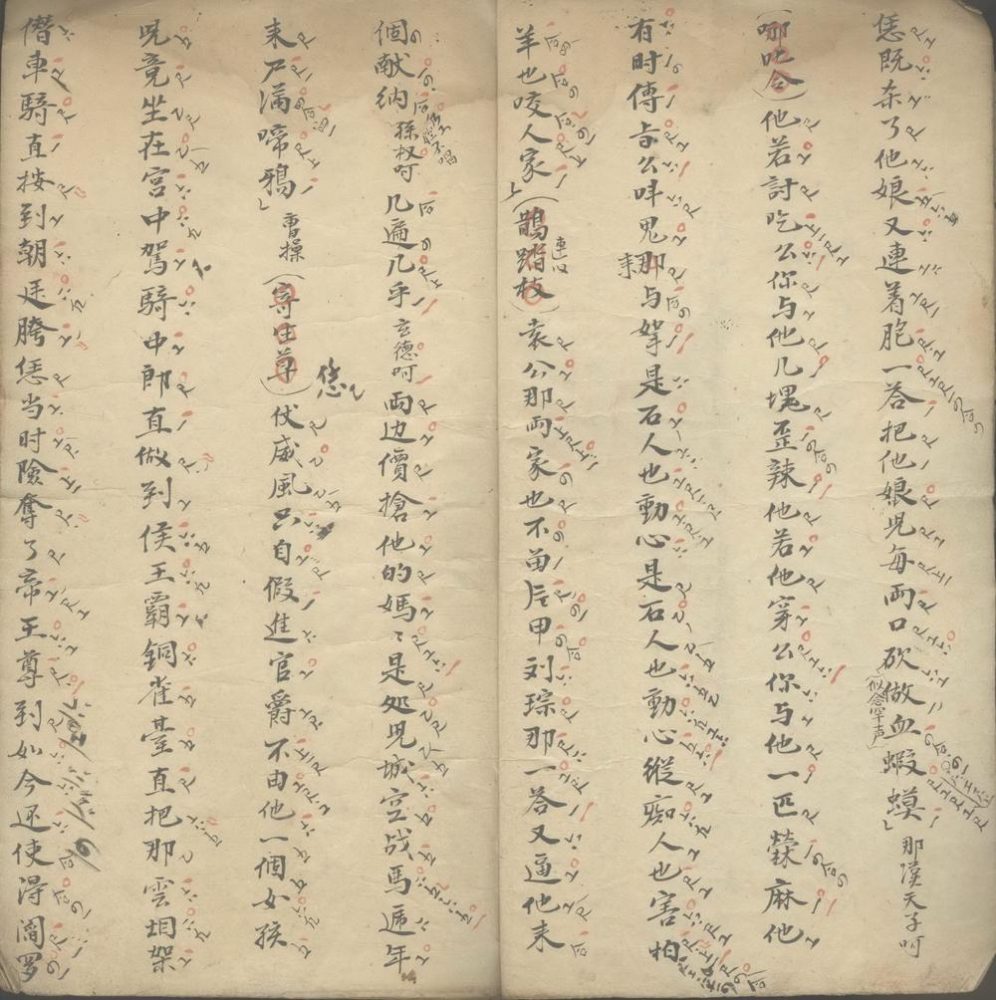 恁既杀了他娘又連着胞一荅把他娘兒每両口砍做血蝦蟆(似念罕声)那漢天子呵
(哪吒令)他若討吃么你与他几塊歪辣他若他穿么你与他一匹檾麻他
有时傳旨么呌鬼那来与拏是石人也動心是石人也動心縱痴人也害怕
羊也咬人家(鵲踏枝)袁公那両家也不畄片甲刘琮那一荅又逼他来
個献納孫权呵几遍几乎玄德呵両边價搶他的媽〻是处兒城空战馬遞年
来尸滿啼鴉曹操(寄生草)恁伏威風只自假進官爵不由他一個女孩
兒竟坐在宫中駕騎中郎直做到侯王霸铜雀臺直把那雲烟架
僭車騎直按到朝廷胯恁当时險奪了帝王尊到如今还使得阎罗